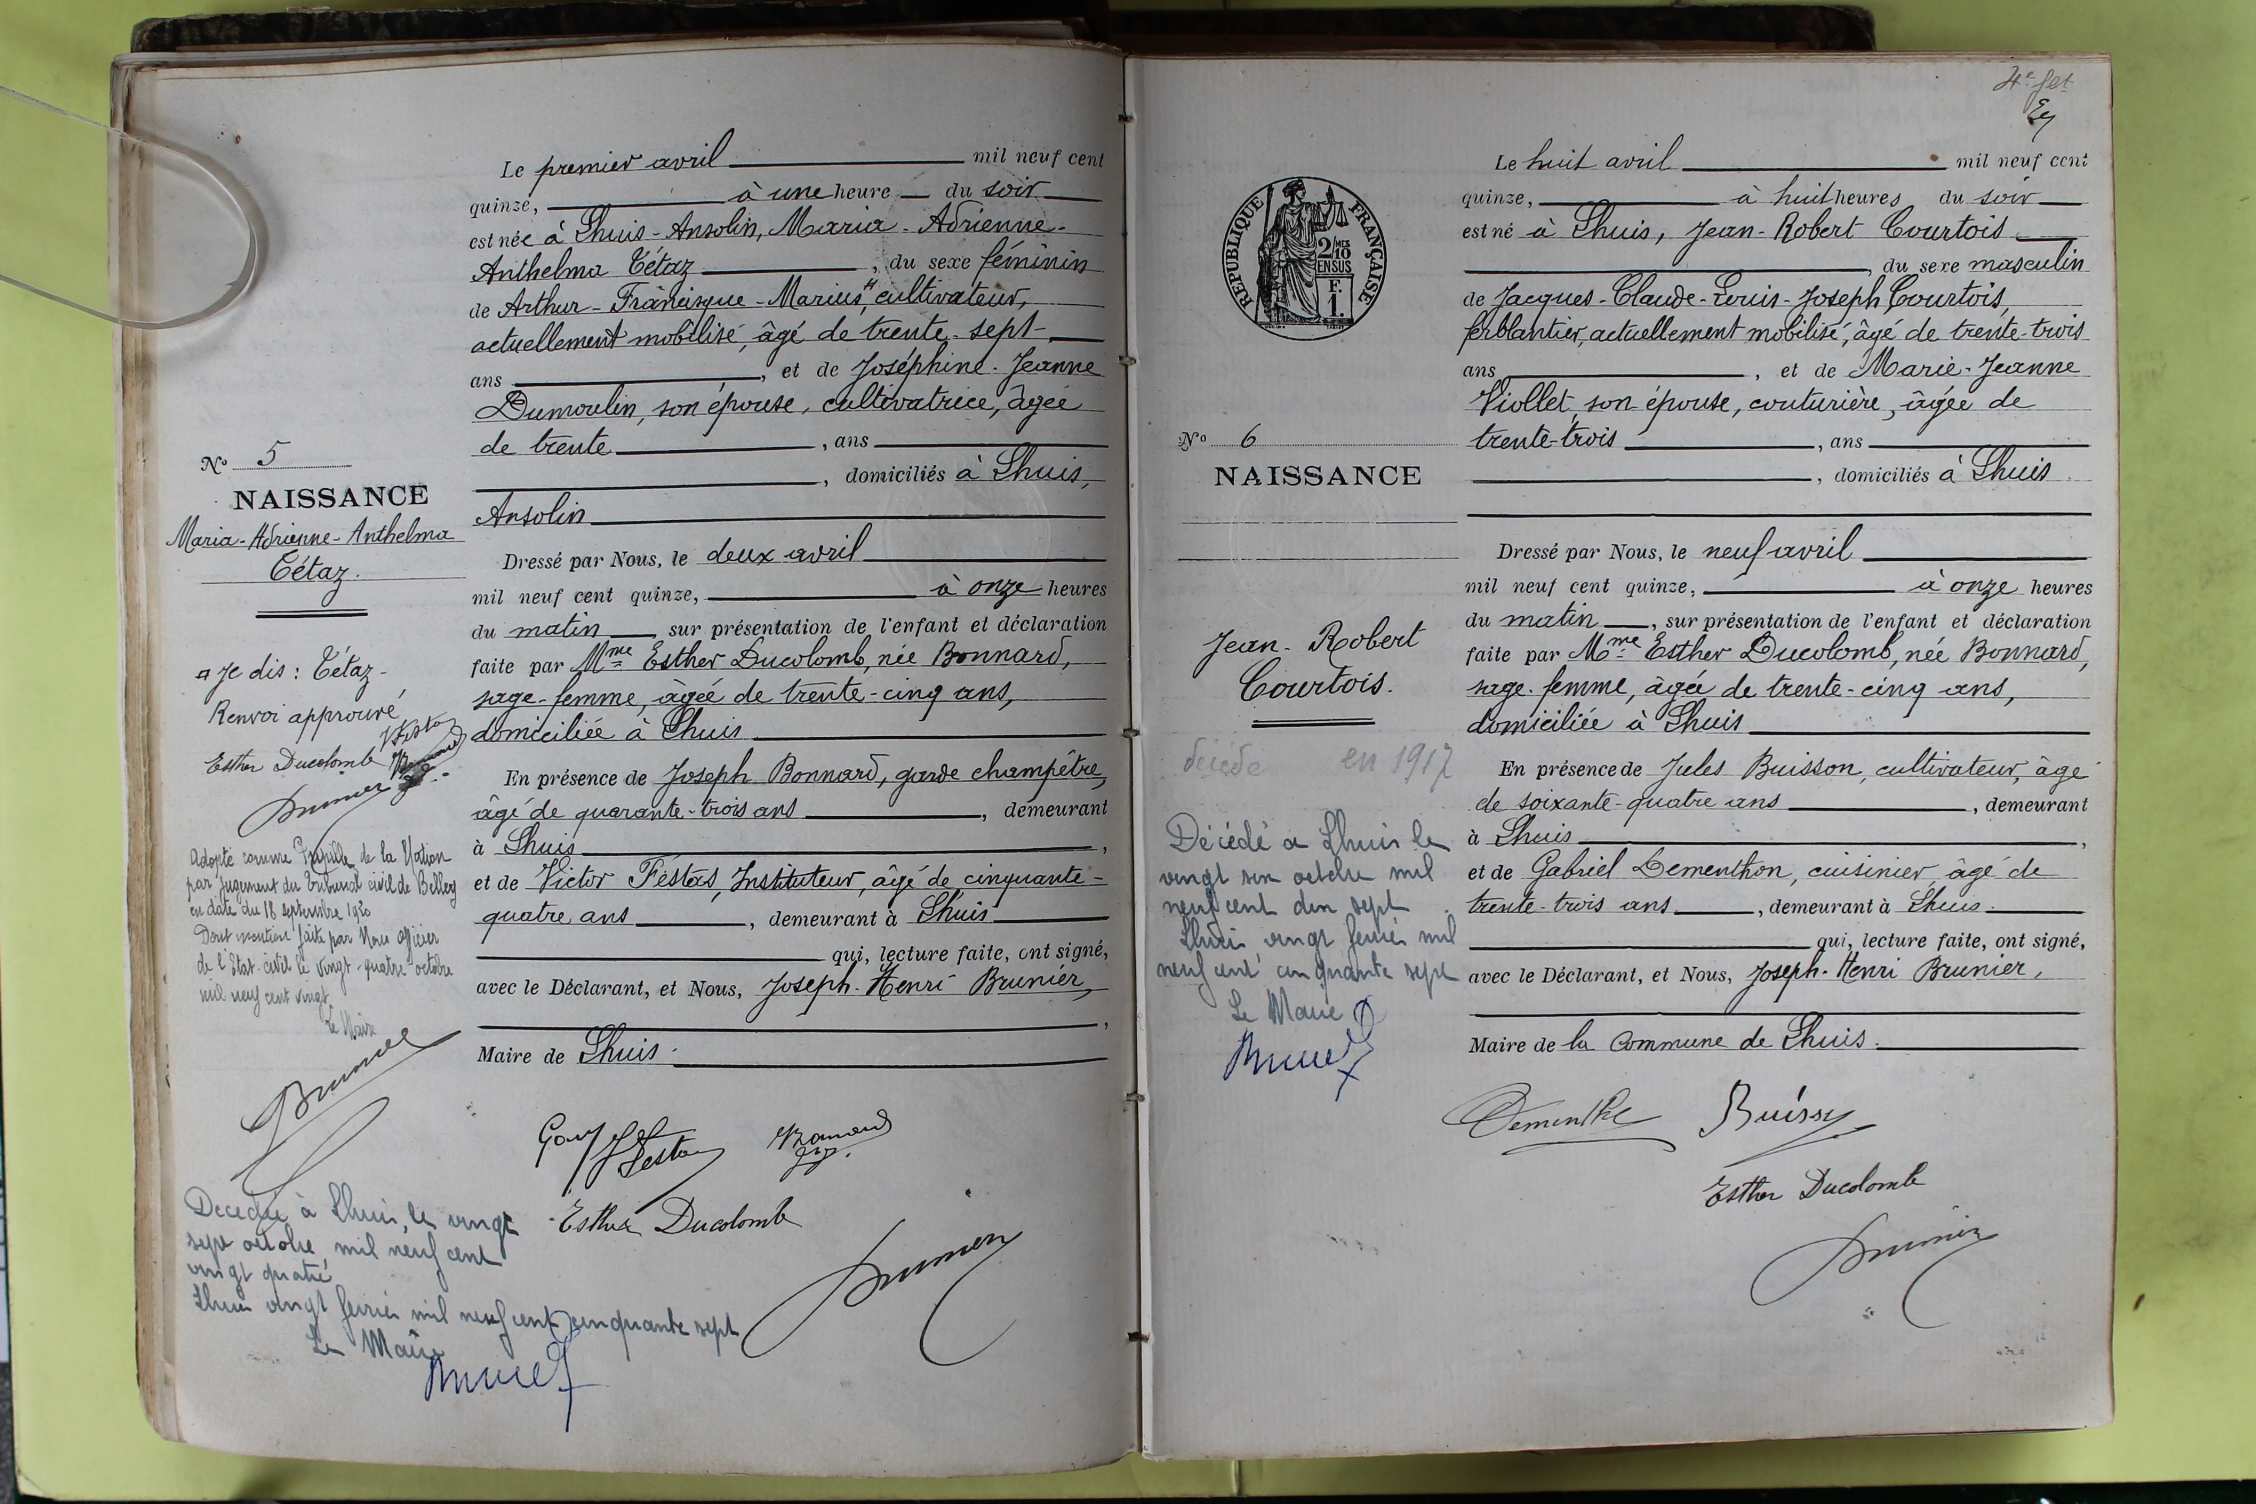 Le premier avril mil neuf cent
quinze, à une heure du soir
est née à Lhuis-Ansolin, Maria-Adrienne-
Anthelma Tétaz, du sexe féminin
de Arthur-Francisque-Marius, cultivateur,
actuellement mobilisé, âgé de trente-sept
ans, et de Joséphine-Jeanne
Dumoulin, son épouse, cultivatrice, âgée
de trente, ans
, domiciliés à Lhuis,
Ansolin
Dressé par Nous, le deux avril
mil neuf cent quinze, à onze heures
du matin, sur présentation de l'enfant et déclaration
faite par Mme Esther Ducolomb, née Bonnard,
sage-femme, âgée de trente-cinq ans,
domiciliée à Lhuis
En présence de Joseph Bonnard, garde champêtre,
âgé de quarante-trois ans, demeurant
à Lhuis,
et de Victor Festas, Instituteur, âgé de cinquante-
quatre ans, demeurant à Lhuis
qui, lecture faite, ont signé,
avec le Déclarant, et Nous, Joseph-Henri Brunier,
,
Maire de Lhuis.
Esther Ducolomb
Brunier
No 5
NAISSANCE
Maria-Adrienne-Anthelma
Tétaz.
Je dis: Tétaz-
Renvoi approuvé
Esther Ducolomb
Brunier
Adopté comme Pupille de la Nation
par jugement du Tribunal civil de Belley
en date du 18 septembre 1920
Dont mention faite par Nous officier
de l'Etat-civil le vingt-quatre octobre
mil neuf cent vingt
Le Maire
Décédée à Lhuis, le vingt
sept octobre mil neuf cent
vingt quatre
Lhuis vingt février mil neuf cent cinquante sept
Le Maire
4e fet
REPUBLIQUE FRANÇAISE
2/10 MES
EN SUS
F.
1.
Le huit avril mil neuf cent
quinze, à huit heures du soir
est né à Lhuis, Jean-Robert Courtois
, du sexe masculin
de Jacques-Claude-Louis-Joseph Courtois,
ferblantier, actuellement mobilisé, âgé de trente-trois
ans, et de Marie-Jeanne
Viollet, son épouse, couturière, âgée de
trente-trois, ans
, domiciliés à Lhuis
Dressé par Nous, le neuf avril
mil neuf cent quinze, à onze heures
du matin, sur présentation de l'enfant et déclaration
faite par Mme Esther Ducolomb, née Bonnard,
sage-femme, âgée de trente-cinq ans,
domiciliée à Lhuis
En présence de Jules Buisson, cultivateur, âgé
de soixante-quatre ans, demeurant
à Lhuis,
et de Gabriel Dementhon, cuisinier, âgé de
trente-trois ans, demeurant à Lhuis.
qui, lecture faite, ont signé,
avec le Déclarant, et Nous, Joseph-Henri Brunier,
Maire de la Commune de Lhuis.
Esther Ducolomb
Brunier
No 6
NAISSANCE
Jean-Robert
Courtois.
décédé en 1917
Décédé à Lhuis le
vingt six octobre mil
neuf cent dix sept
Lhuis vingt février mil
neuf cent cinquante sept
Le Maire